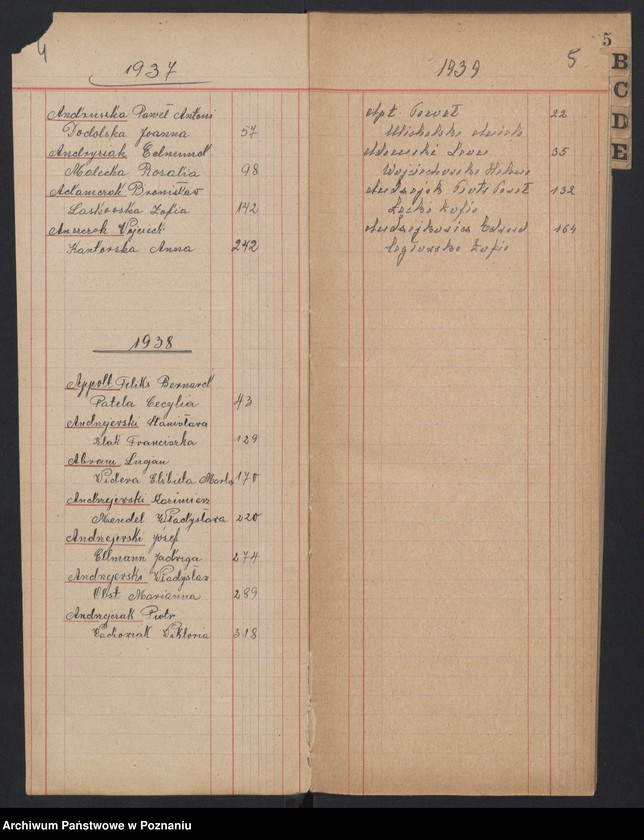 4
1937
Andruszka Paweł Antoni
Dodolska Joanna 57
Andrysiak Edmund
Malecka Rozalia 98
Adamczak Bronisław
Laskowska Zofia 142
Anszczak Wojciech
Kantorska Anna 242
1938
Appolt Feliks Bernard
Patela Cecylia 43
Andrzejewski Stanisława
Ptak Franciszka 129
Abram Lucjan
Widera Elżbieta Marta 170
Andrzejewski Kazimierz
Mendel Władysława 220
Andrzejewski Józef
Ellmann Jadwiga 274
Andrzejewski Władysław
Obst Marianna 289
Andrzejczak Piotr
Wachowiak Wiktoria 318
5
5
1939
Apt Paweł 22
35
Wojciechowska Helena
Piotr Paweł 132
Zofia
Edward 164
Zofia
B
C
D
E
Archiwum Państwowe w Poznaniu